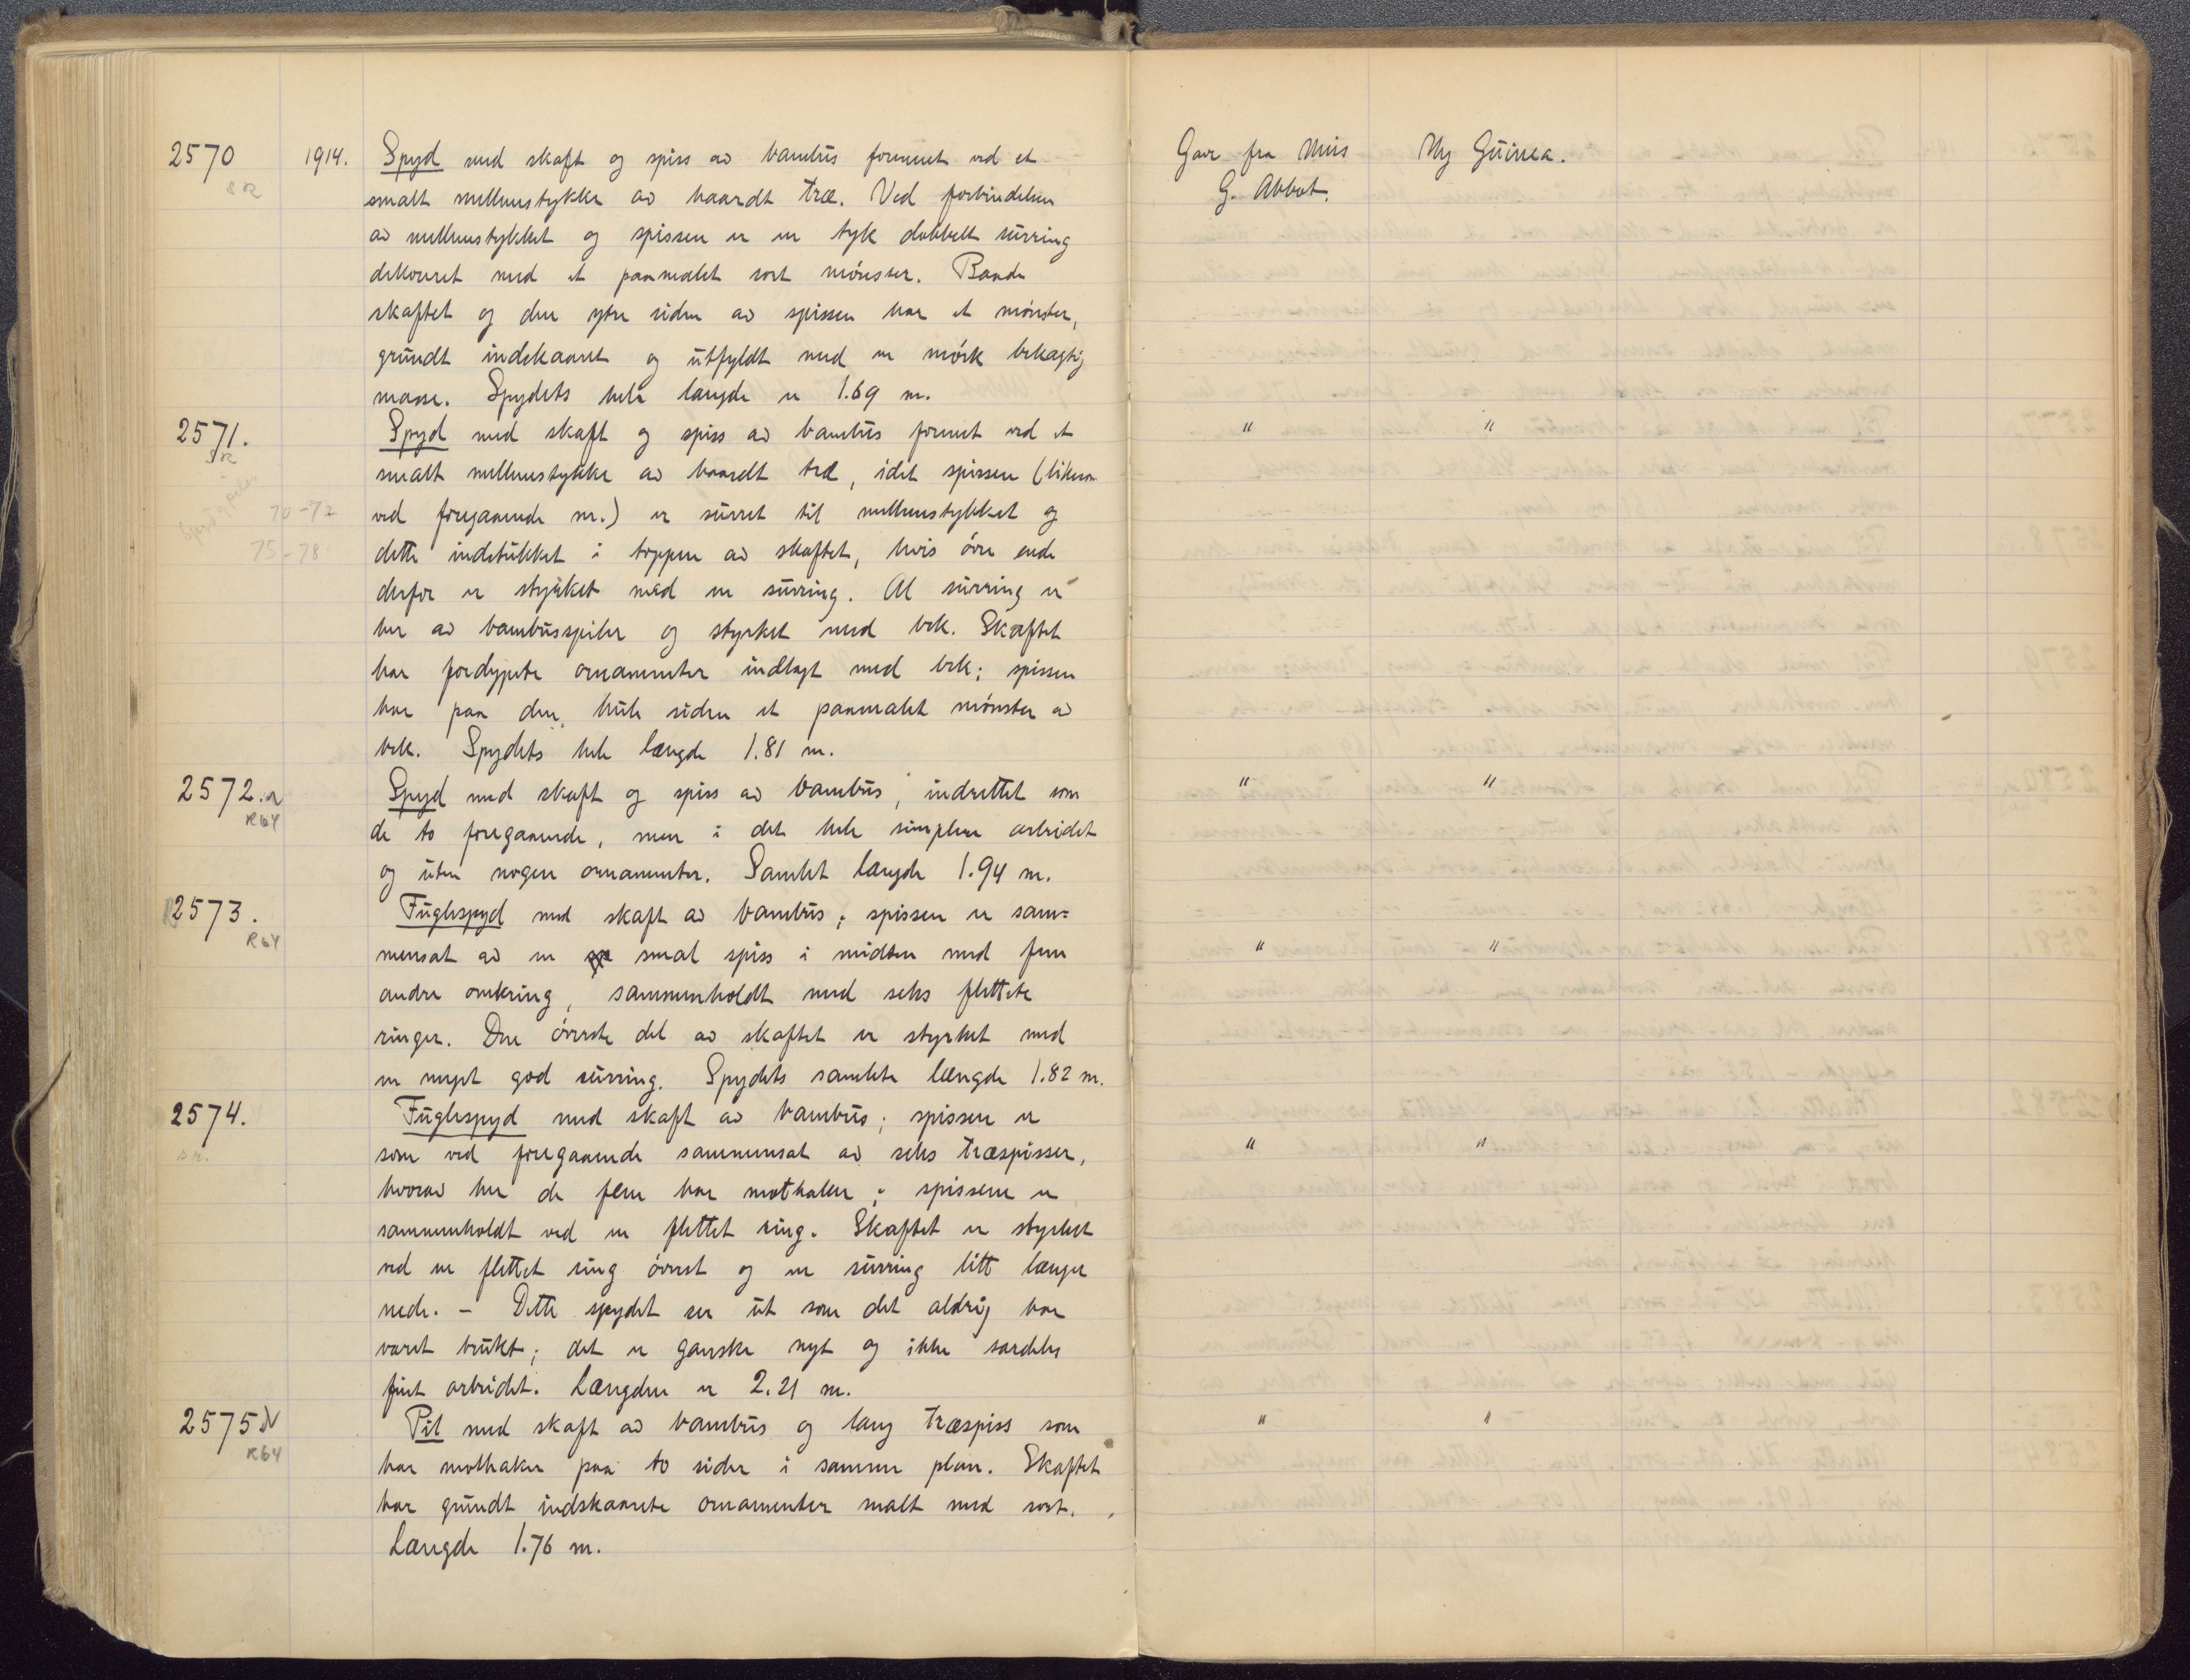 2570 1914. Spyd med skaft og spiss av bambus forenet ved et
SR smalt mellemstykke av haardt træ. Ved forbindelsen
av mellemstykket og spissen er en tyk dobbelt surring
dekoreret med et paamalet sort mønster. Baade
skaftet og den ytre siden av spissen har et mønster,
grundt indskaaret og utfyldt med en mørk bekagtig
masse. Spydets hele længde er 1.69 m.
2571. Spyd med skaft og spiss av bambus forenet ved et
SR smalt mellemstykke av haardt træ, idet spissen (likesom
70-72 ved foregaaende nr.) er surret til mellemstykket og
75-78 dette indstukket i toppen av skaftet, hvis øvre ende
derfor er styrket med en surring. Al surring er
her av bambusspiler og styrket med bek. Skaftet
har fordypete ornamenter indlagt med bek; spissen
har paa den hule siden et paamalet mønster av
bek. Spydets hele længde 1.81 m.
2572. N Spyd med skaft og spiss av bambus, indrettet som
R64 de to foregaaende, men i det hele simplere arbeidet
og uten nogen ornamenter. Samlet længde 1.94 m.
2573. Fuglespyd med skaft av bambus; spissen er sam=
R64 mensat av en smal spiss i midten med fem
andre omkring, sammenholdt med seks flettete
ringer. Den øverste del av skaftet er styrket med
en meget god surring. Spydets samlete længde 1.82 m.
2574. Fuglespyd med skaft av bambus; spissen er
SR. som ved foregaaende sammensat av seks træspisser,
hvorav her de fem har mothaker; spissene er
sammenholdt ved en flettet ring. Skaftet er styrket
ved en flettet ring øverst og en surring litt længer
nede. - Dette spydet ser ut som det aldrig har
været brukt; det er ganske nyt og ikke særdeles
fint arbeidet. Længden er 2.21 m.
2575 N Pil med skaft av bambus og lang træspiss som
R64 har mothaker paa to sider i samme plan. Skaftet
har grundt indskaarete ornamenter malt med sort.
Længde 1.76 m.
Gave fra Miss Ny Guinea.
G. Abbot.
" "
" "
" "
" "
" "